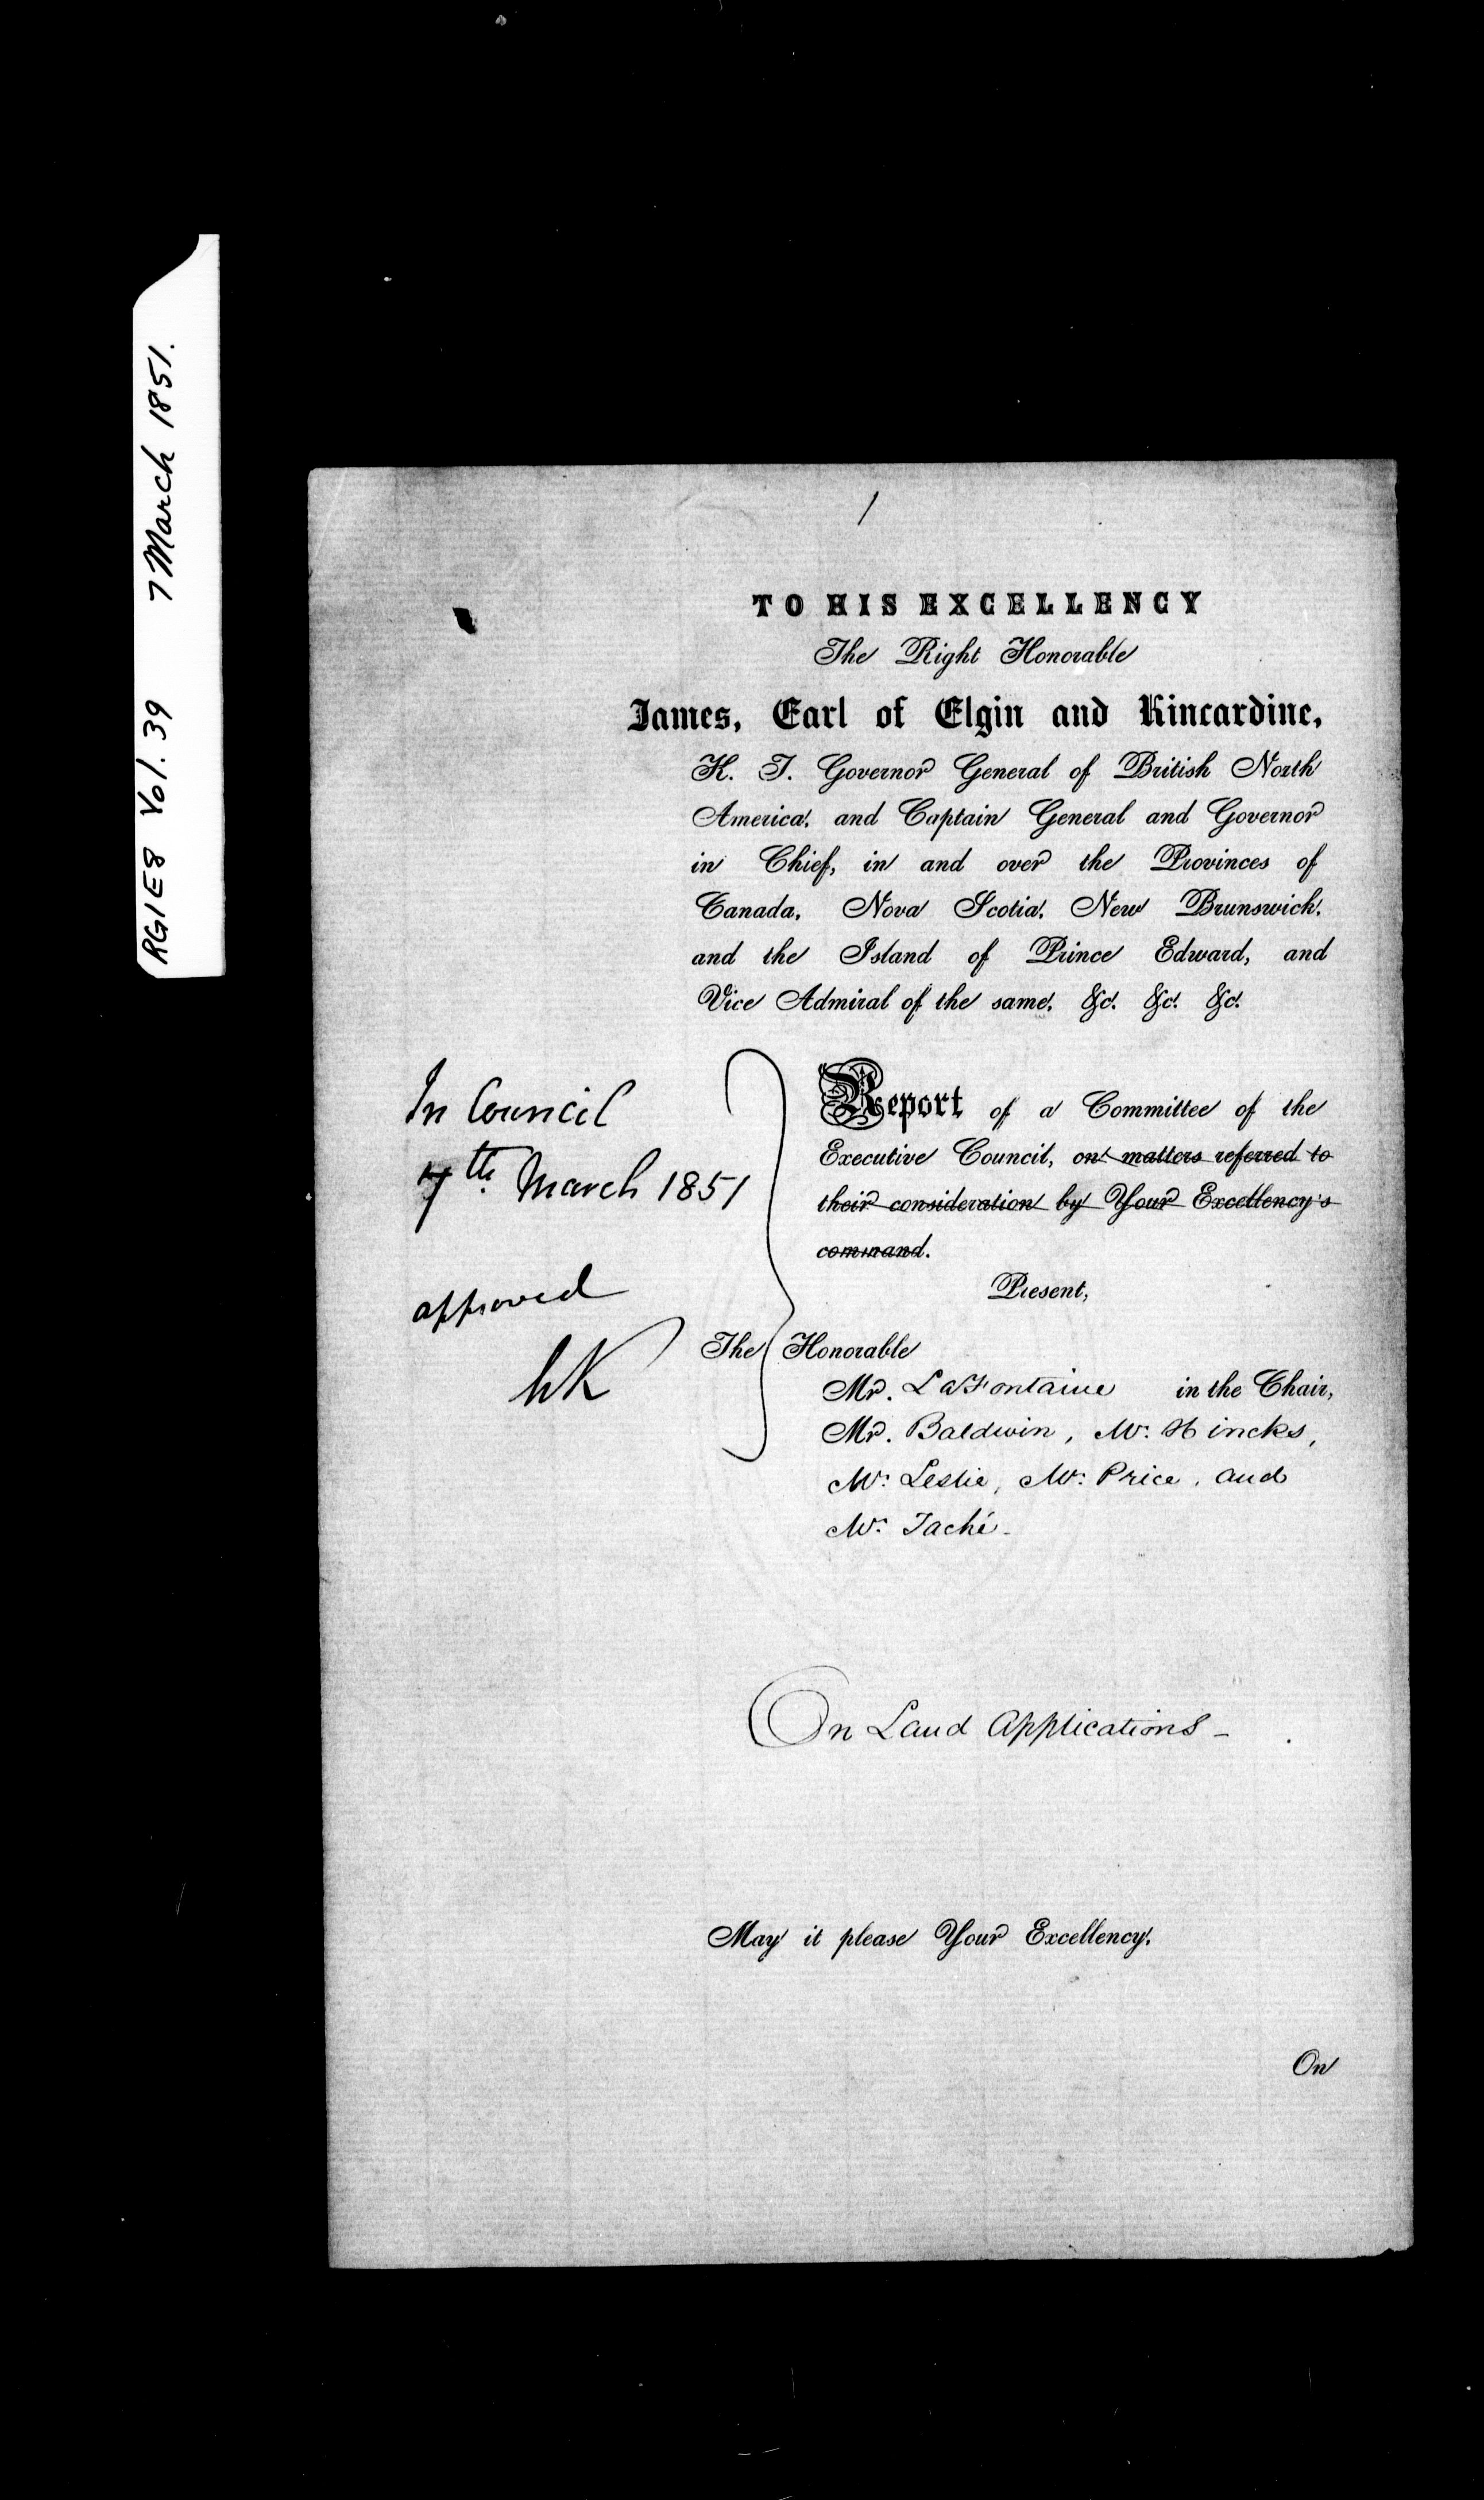 RG1E8 Vol. 39 7 March 1851.
1
TO HIS EXCELLENCY
The Right Honorable
James, Earl of Elgin and Kincardine,
K. T. Governor General of British North
America, and Captain General and Governor
in Chief, in and over the Provinces of
Canada, Nova Scotia, New Brunswick,
and the Island of Prince Edward, and
Vice Admiral of the same, &c. &c. &c.
In Council
7th March 1851
approved
Report of a Committee of the
Executive Council, on matters referred to
their consideration by Your Excellency's
command.
Present,
The Honorable
Mr. LaFontaine in the Chair,
Mr. Baldwin, Mr. Hincks,
Mr. Leslie, Mr. Price, and
Mr. Taché.
On Land Applications -
May it please Your Excellency,
On